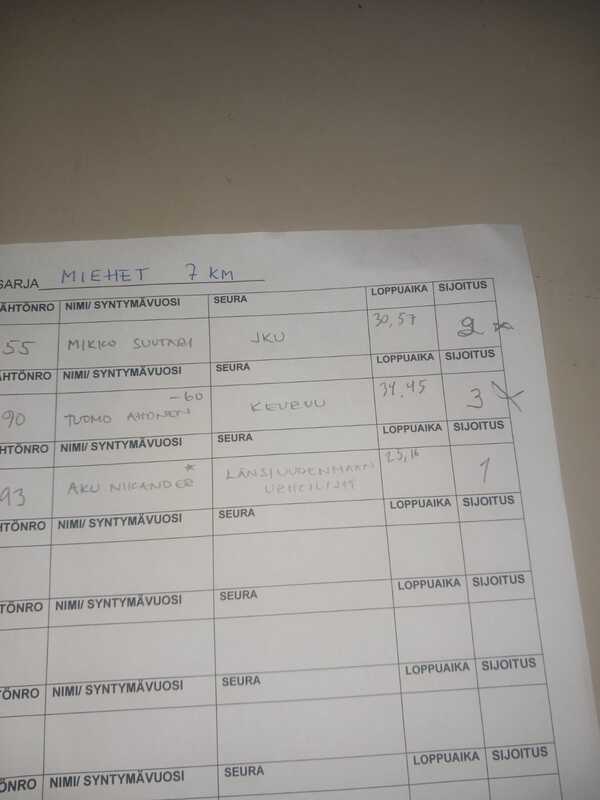 SARJA MIEHET 7 KM
ÄHTÖNRO NIMI/ SYNTYMÄVUOSI SEURA LOPPUAIKA SIJOITUS
55 MIKKO SUUTARI JKU 30,57 2
ÄHTÖNRO NIMI/ SYNTYMÄVUOSI SEURA LOPPUAIKA SIJOITUS
-60
90 TUOMO AHONEN KEURUU 3
ÄHTÖNRO NIMI/ SYNTYMÄVUOSI SEURA LOPPUAIKA SIJOITUS
93 AKU NIKANDER * LÄNSIUUDENMAAN 25,16 1
URHEILIJAT
ÄHTÖNRO NIMI/ SYNTYMÄVUOSI SEURA LOPPUAIKA SIJOITUS
HTÖNRO NIMI/ SYNTYMÄVUOSI SEURA LOPPUAIKA SIJOITUS
HTÖNRO NIMI/ SYNTYMÄVUOSI SEURA LOPPUAIKA SIJOITUS
TÖNRO NIMI/ SYNTYMÄVUOSI SEURA LOPPUAIKA SIJOITUS